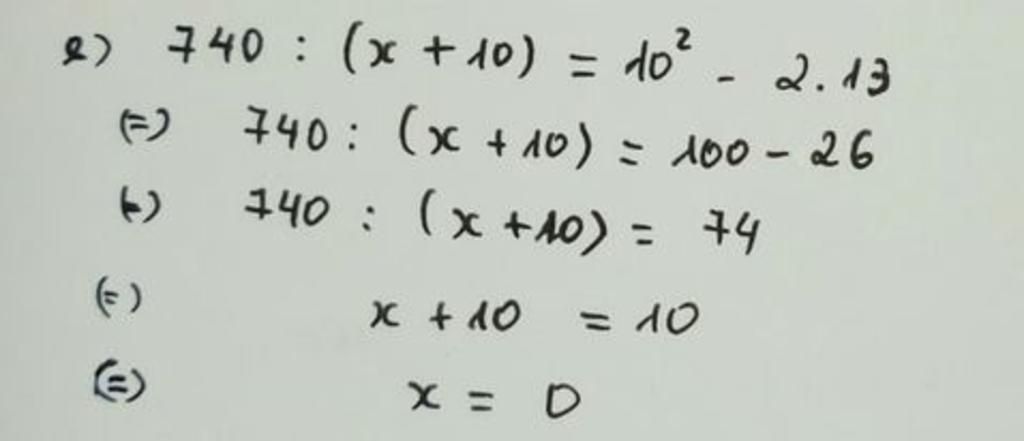 e) 740 : (x + 10) = 10² - 2.13
(=) 740 : (x + 10) = 100 - 26
(=) 740 : (x + 10) = 74
(=) x + 10 = 10
(=) x = 0